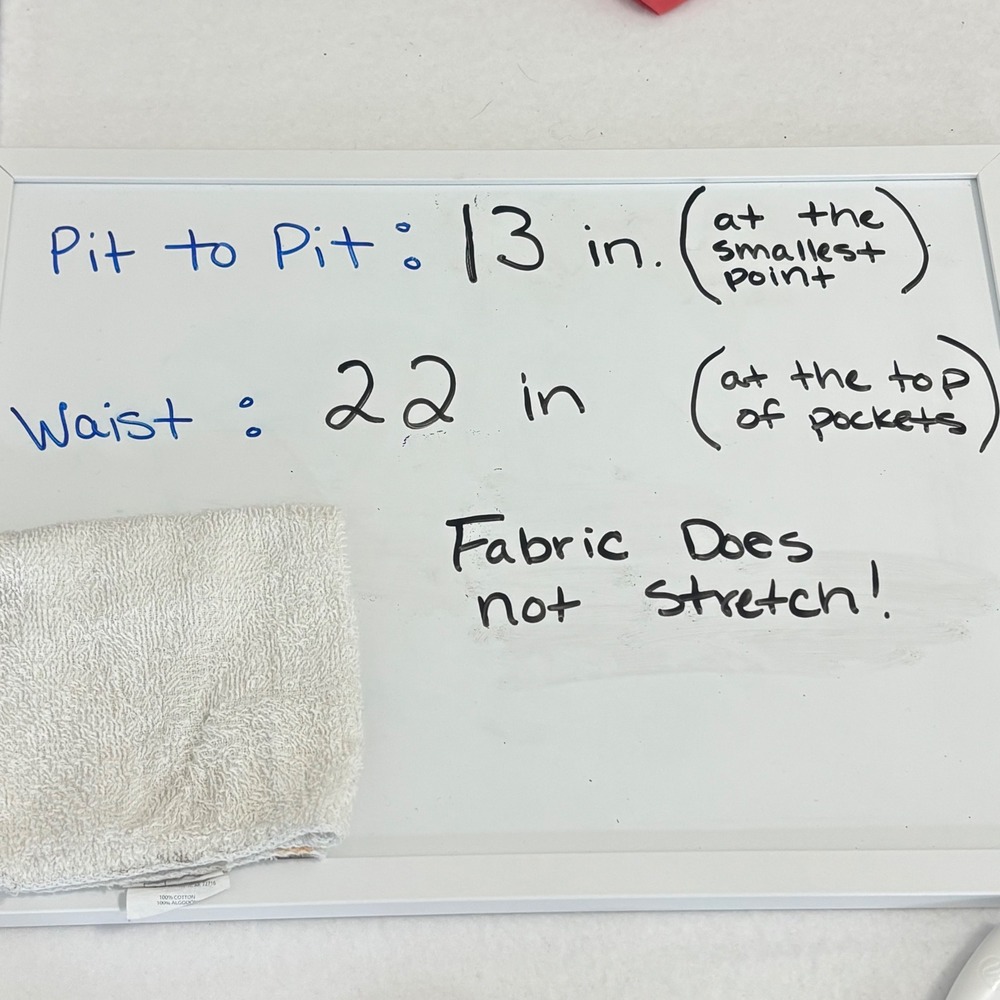 Pit to Pit: 13 in. (at the smallest point)
Waist: 22 in (at the top of pockets)
Fabric Does
not stretch!
100% COTTON